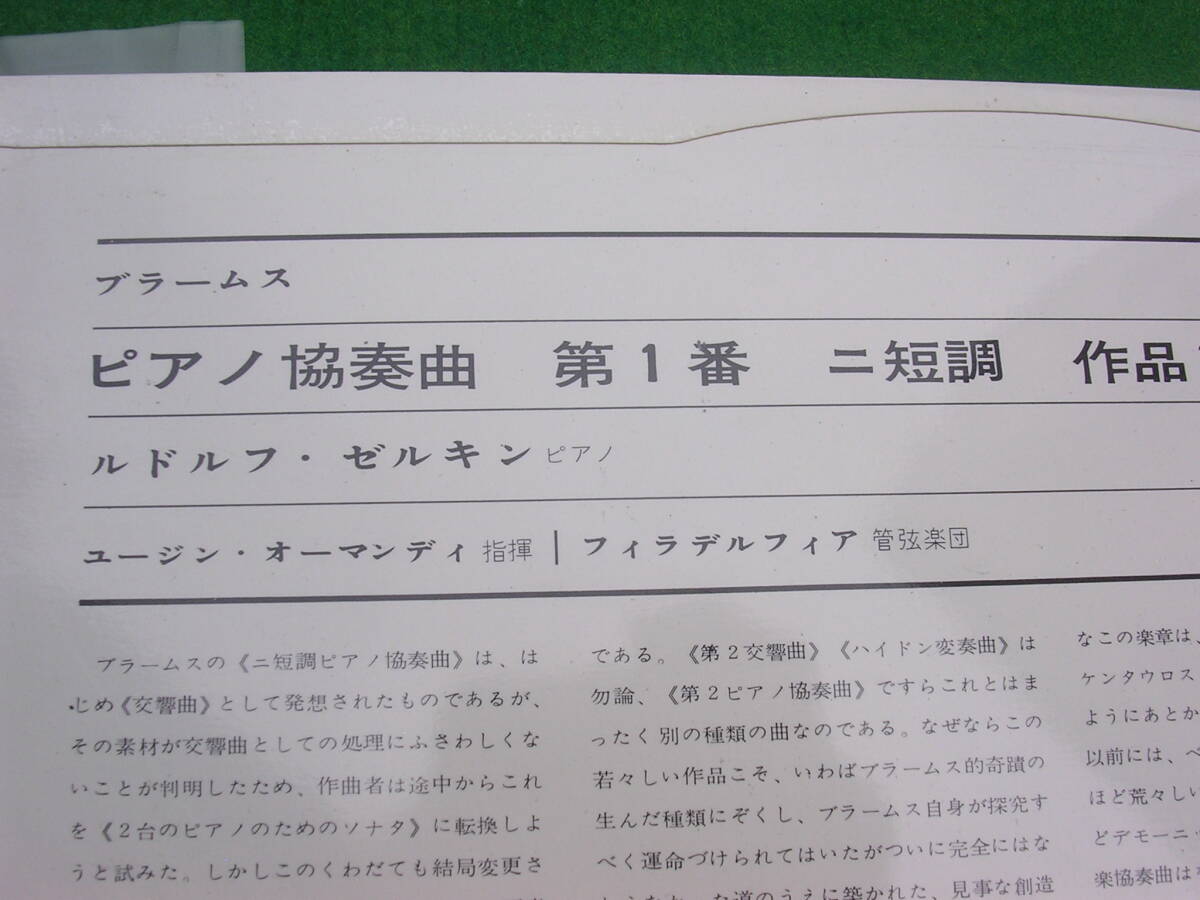 ブラームス
ピアノ協奏曲 第1番 ニ短調 作品
ルドルフ・ゼルキン ピアノ
ユージン・オーマンディ 指揮 | フィラデルフィア 管弦楽団
ブラームスの《ニ短調ピアノ協奏曲》は、は
じめ《交響曲》として発想されたものであるが、
その素材が交響曲としての処理にふさわしくな
いことが判明したため、作曲者は途中からこれ
を《2台のピアノのためのソナタ》に転換しよ
うと試みた。しかしこのくわだても結局変更さ
である。《第2交響曲》《ハイドン変奏曲》は
勿論、《第2ピアノ協奏曲》ですらこれとはま
ったく別の種類の曲なのである。なぜならこの
若々しい作品こそ、いわばブラームス的奇蹟の
生んだ種類にぞくし、ブラームス自身が探究す
べく運命づけられてはいたがついに完全にはな
道のうえに築かれた、見事な創造
なこの楽章は、
ケンタウロス
ようにあとか
以前には、ベ
ほど荒々しい
どデモーニッ
楽協奏曲は